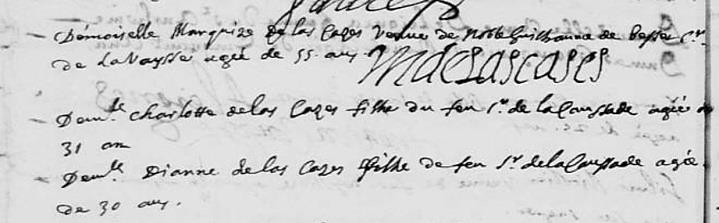 Demoiselle Marquize de las Cazes veuve de Noble Guilhaume de Besse Sr.
de la Vaysse agée de 55 ans. MdeLascases
Damlle Charlotte de las Cazes filhe du feu Sr. de la Caussade agée
31 an
Damlle Dianne de las Cazes filhe de feu Sr. de la Caussade agée
de 30 ans.